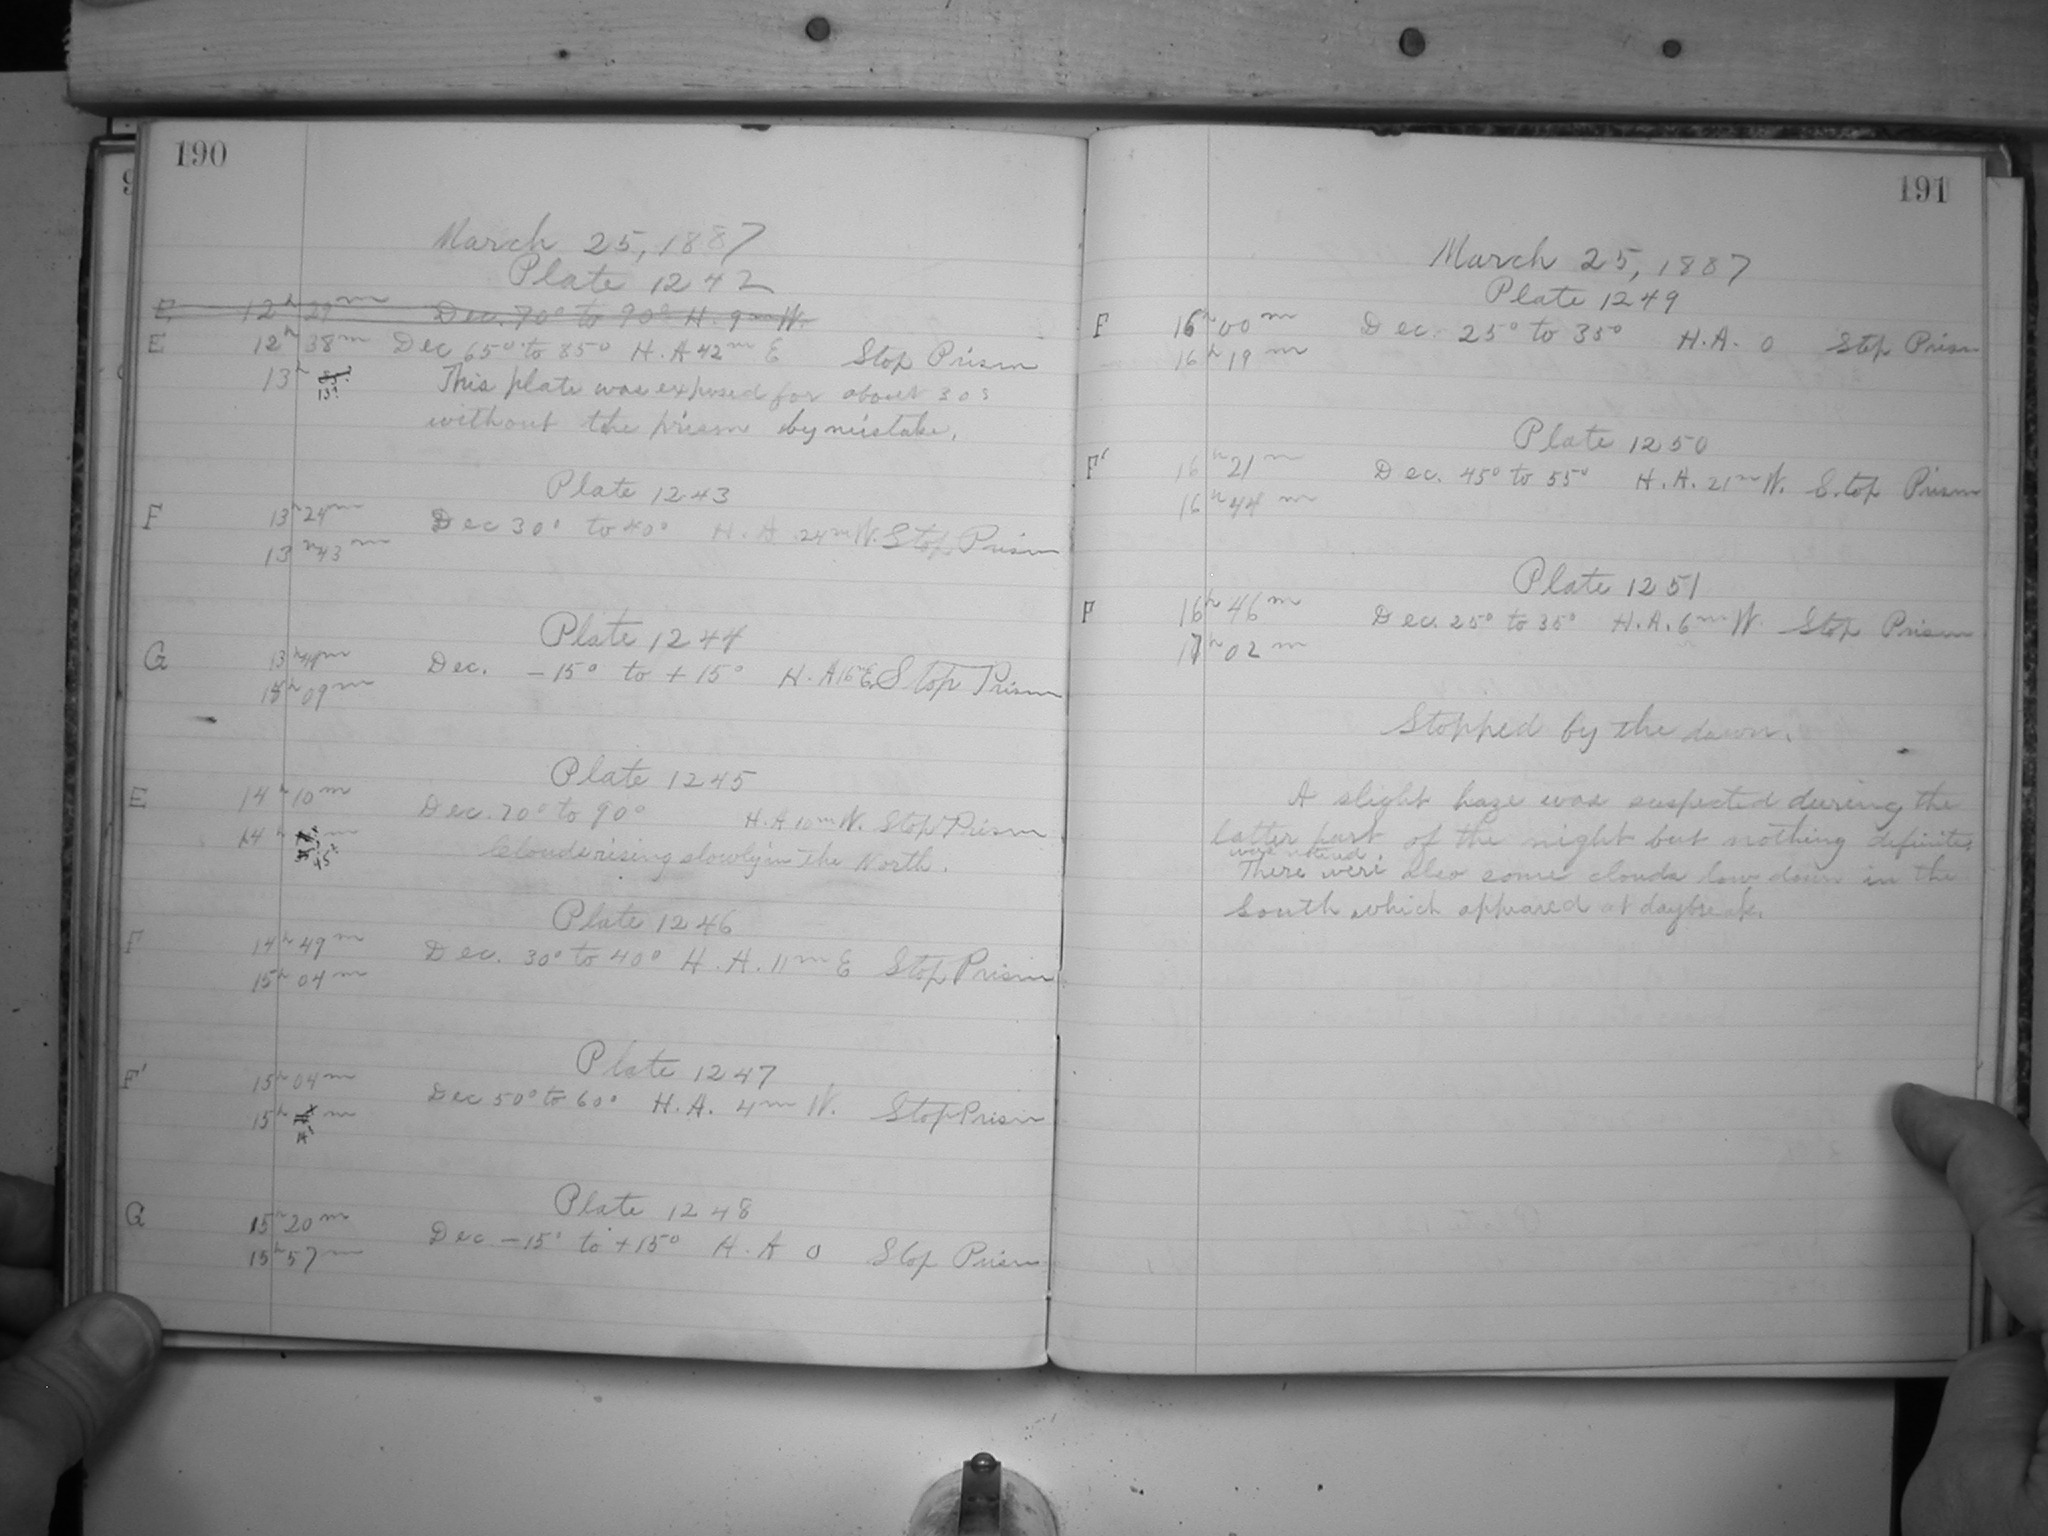 190
March 25, 1887
Plate 1242
E 12h 29m Dec. 70° to 90° H. 9m W.
E 12h 38m Dec 65° to 85° H. A 42m E Stop Prism
13h This plate was exposed for about 30s
without the prism by mistake.
Plate 1243
F 13h 24m Dec 30° to 40° H. A. 24m W. Stop Prism
13h 43m
Plate 1244
G 13h 44m Dec. -15° to +15° H. A 16m E. Stop Prism
15h 09m
Plate 1245
E 14h 10m Dec. 70° to 90° H. A 10m W. Stop Prism
14h m Clouds rising slowly in the North.
Plate 1246
F 14h 49m Dec. 30° to 40° H. A. 11m E Stop Prism
15h 04m
Plate 1247
F' 15h 04m Dec 50° to 60° H. A. 4m W. Stop Prism
15h m
Plate 1248
G 15h 20m Dec -15° to +15° H. A 0 Stop Prism
15h 57m
191
March 25, 1887
Plate 1249
F 16h 00m Dec. 25° to 35° H. A. 0 Stop Prism
16h 19m
Plate 1250
F' 16h 21m Dec. 45° to 55° H. A. 21m W. Stop Prism
16h 44m
Plate 1251
F 16h 46m Dec. 25° to 35° H. A. 6m W. Stop Prism
17h 02m
Stopped by the dawn.
A slight haze was suspected during the
latter part of the night but nothing definite
was noticed.
There were also some clouds low down in the
South which appeared at daybreak.